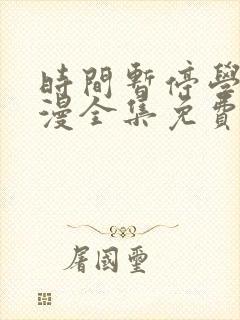 時間暫停學
漫全集免費
屠國璽